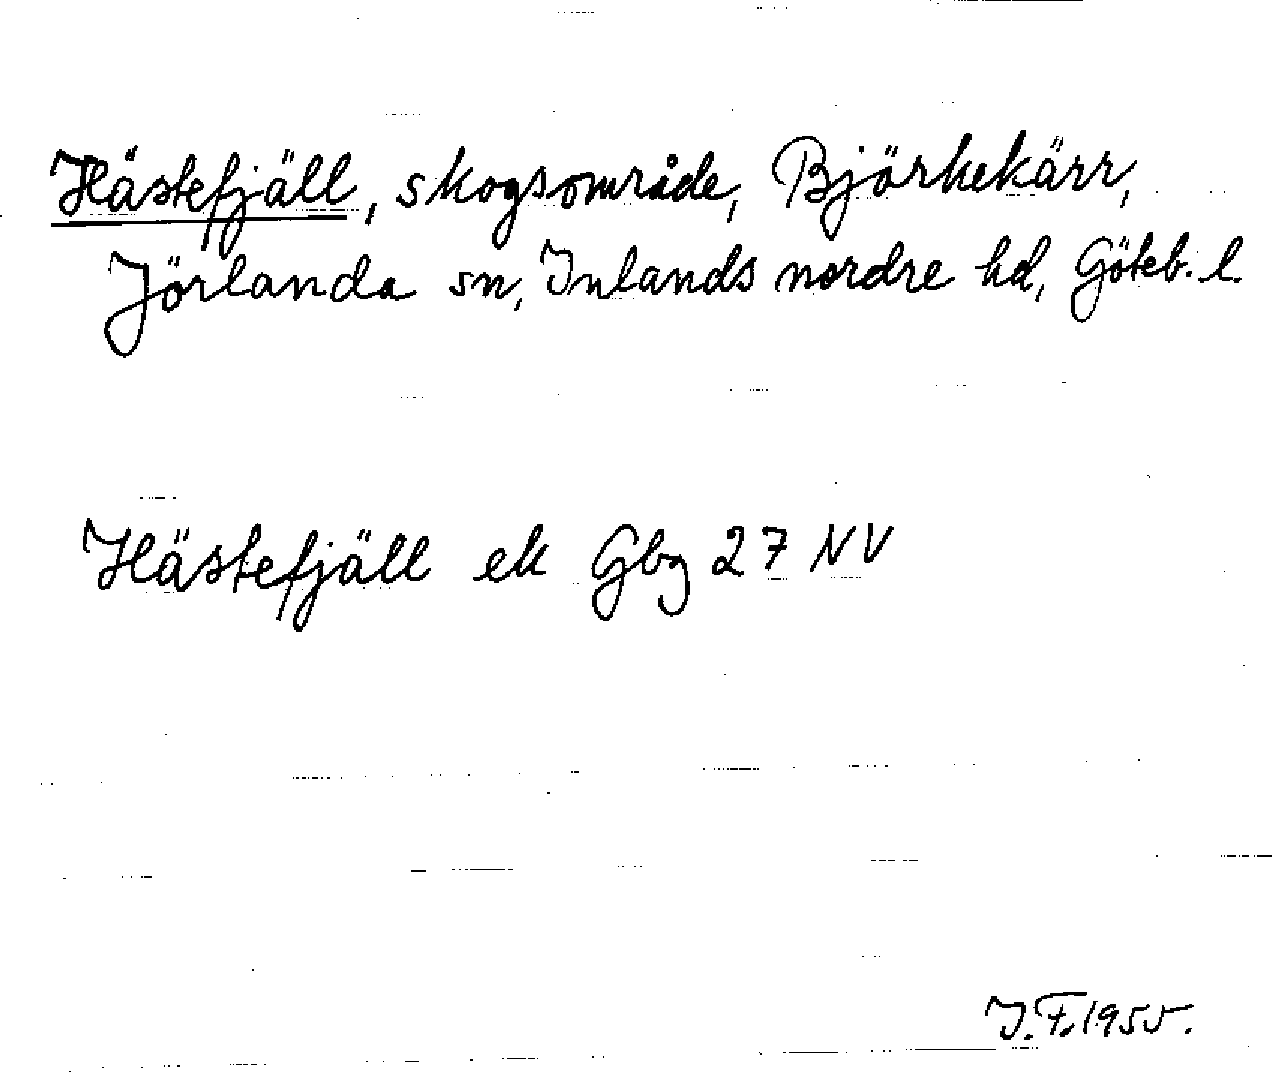 Hästefjäll, skogsområde, Björkekärr,
Jörlanda sn, Inlands nordre hd, Göteb. l.
Hästefjäll ek Gbg 27 NV
J.F. 1955.